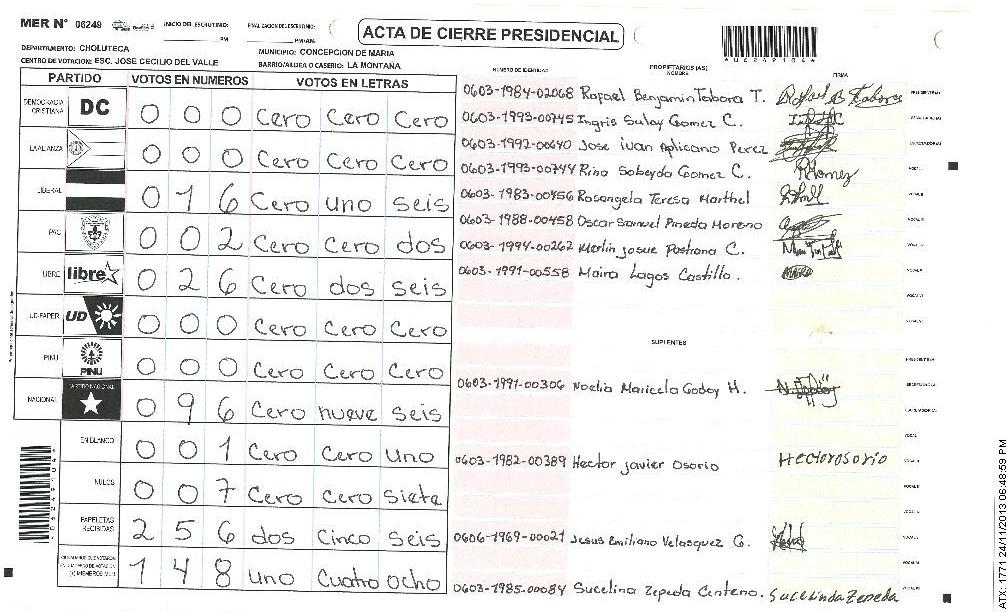 MER N° 06249
INICIO DEL ESCRUTINIO:
PM
FINALIZACION DEL ESCRUTINIO:
PM/AM
ACTA DE CIERRE PRESIDENCIAL
DEPARTAMENTO: CHOLUTECA
MUNICIPIO: CONCEPCION DE MARIA
CENTRO DE VOTACION: ESC. JOSE CECILIO DEL VALLE
BARRIO/ALDEA O CASERIO: LA MONTAÑA
PARTIDO VOTOS EN NUMEROS VOTOS EN LETRAS
DEMOCRACIA CRISTIANA DC 0 0 0 Cero Cero Cero
LA ALIANZA 0 0 0 Cero Cero Cero
LIBERAL 0 1 6 Cero uno seis
PAC 0 0 2 Cero Cero dos
LIBRE libre 0 2 6 Cero dos seis
UD-FAPER UD 0 0 0 Cero Cero Cero
PINU PINU 0 0 0 Cero Cero Cero
NACIONAL PARTIDO NACIONAL 0 9 6 Cero nueve seis
EN BLANCO 0 0 1 Cero Cero uno
NULOS 0 0 7 Cero Cero siete
PAPELETAS RECIBIDAS 2 5 6 dos Cinco seis
(+) MIEMBROS MER 1 4 8 uno Cuatro ocho
NUMERO DE IDENTIDAD PROPIETARIOS (AS) NOMBRE FIRMA
0603-1984-02068 Rafael Benjamin Tabora T.
0603-1993-00745 Ingris Sulay Gomez C.
0603-1992-00640 Jose ivan Aplicano Perez
0603-1993-00744 Rina Sobeyda Gomez C. RGomez
0603-1983-00456 Rosangela Teresa Marthel
0603-1988-00458 Oscar Samuel Pineda Moreno
0603-1994-00262 Merlin Josue Pastrana C.
0603-1991-00558 Maira Lagos Castillo.
SUPLENTES
0603-1991-00306 Noelia Maricela Godoy H.
0603-1982-00389 Hector Javier Osorio Hectorosorio
0606-1969-00021 Jesus Emiliano Velasquez G.
0603-1985-00084 Sucelina Zepeda Centeno. Sucelinda Zepeda
ATX-1771 24/11/2013 06:48:59 PM